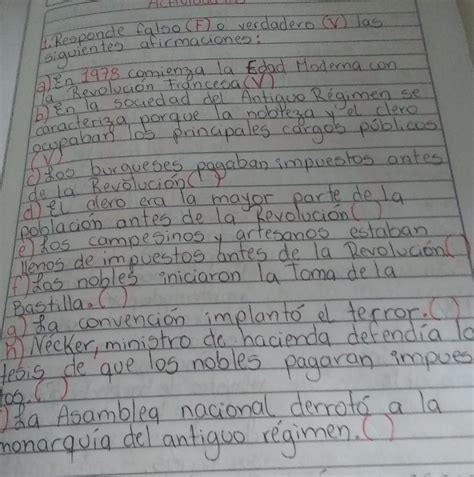 1. Responde falso (F) o verdadero (V) las
siguientes afirmaciones:
a) En 1978 comienza la Edad Moderna con
la Revolución francesa (V)
b) En la sociedad del Antiguo Régimen se
caracteriza porque la nobleza y el clero
ocupaban los principales cargos públicos
(V)
c) Los burgueses pagaban impuestos antes
de la Revolución ( )
d) El clero era la mayor parte de la
población antes de la Revolución ( )
e) Los campesinos y artesanos estaban
llenos de impuestos antes de la Revolución (
f) Los nobles iniciaron la Toma de la
Bastilla. ( )
g) La convención implantó el terror. ( )
h) Necker, ministro de hacienda defendía la
tesis de que los nobles pagaran impues
tos. ( )
) La Asamblea nacional derrotó a la
monarquía del antiguo régimen. ( )